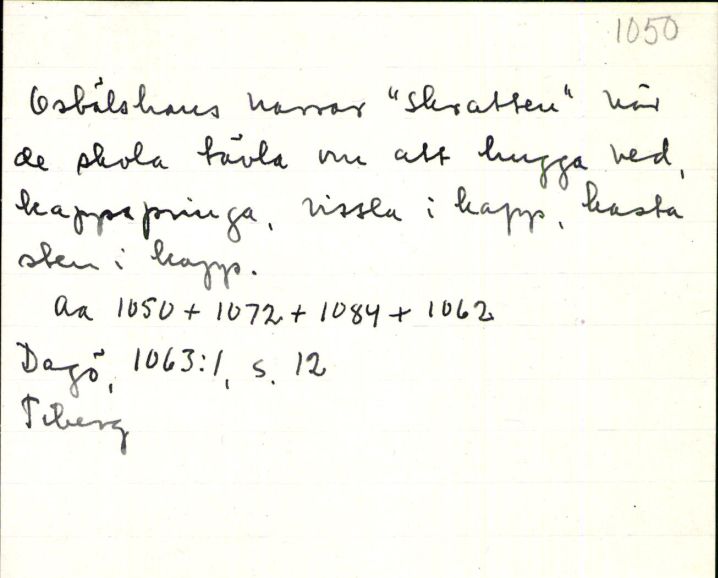 1050
Osbålshans narrar "skratten" när
de skola tävla om att hugga ved,
kappspringa, vissla i kapp, kasta
sten i kapp.
Aa 1050 + 1072 + 1084 + 1062
Dagö, 1063:1, s. 12
Tiberg